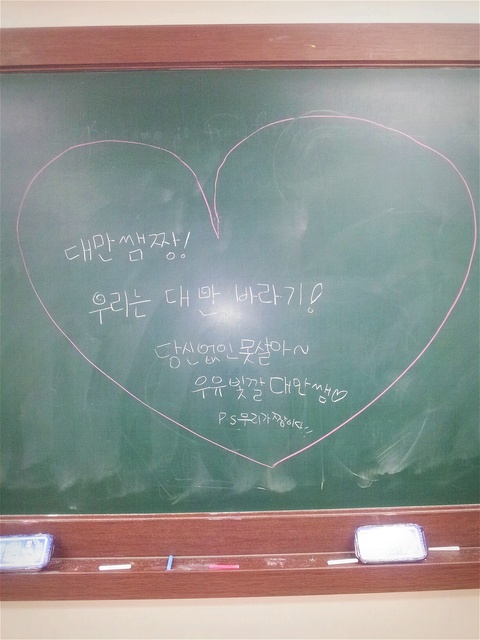 대만쌤짱!
우리는 대만 바라기!
당신없인못살아~
우유빛깔 대만쌤♡
P.S 우리가짱이다!!